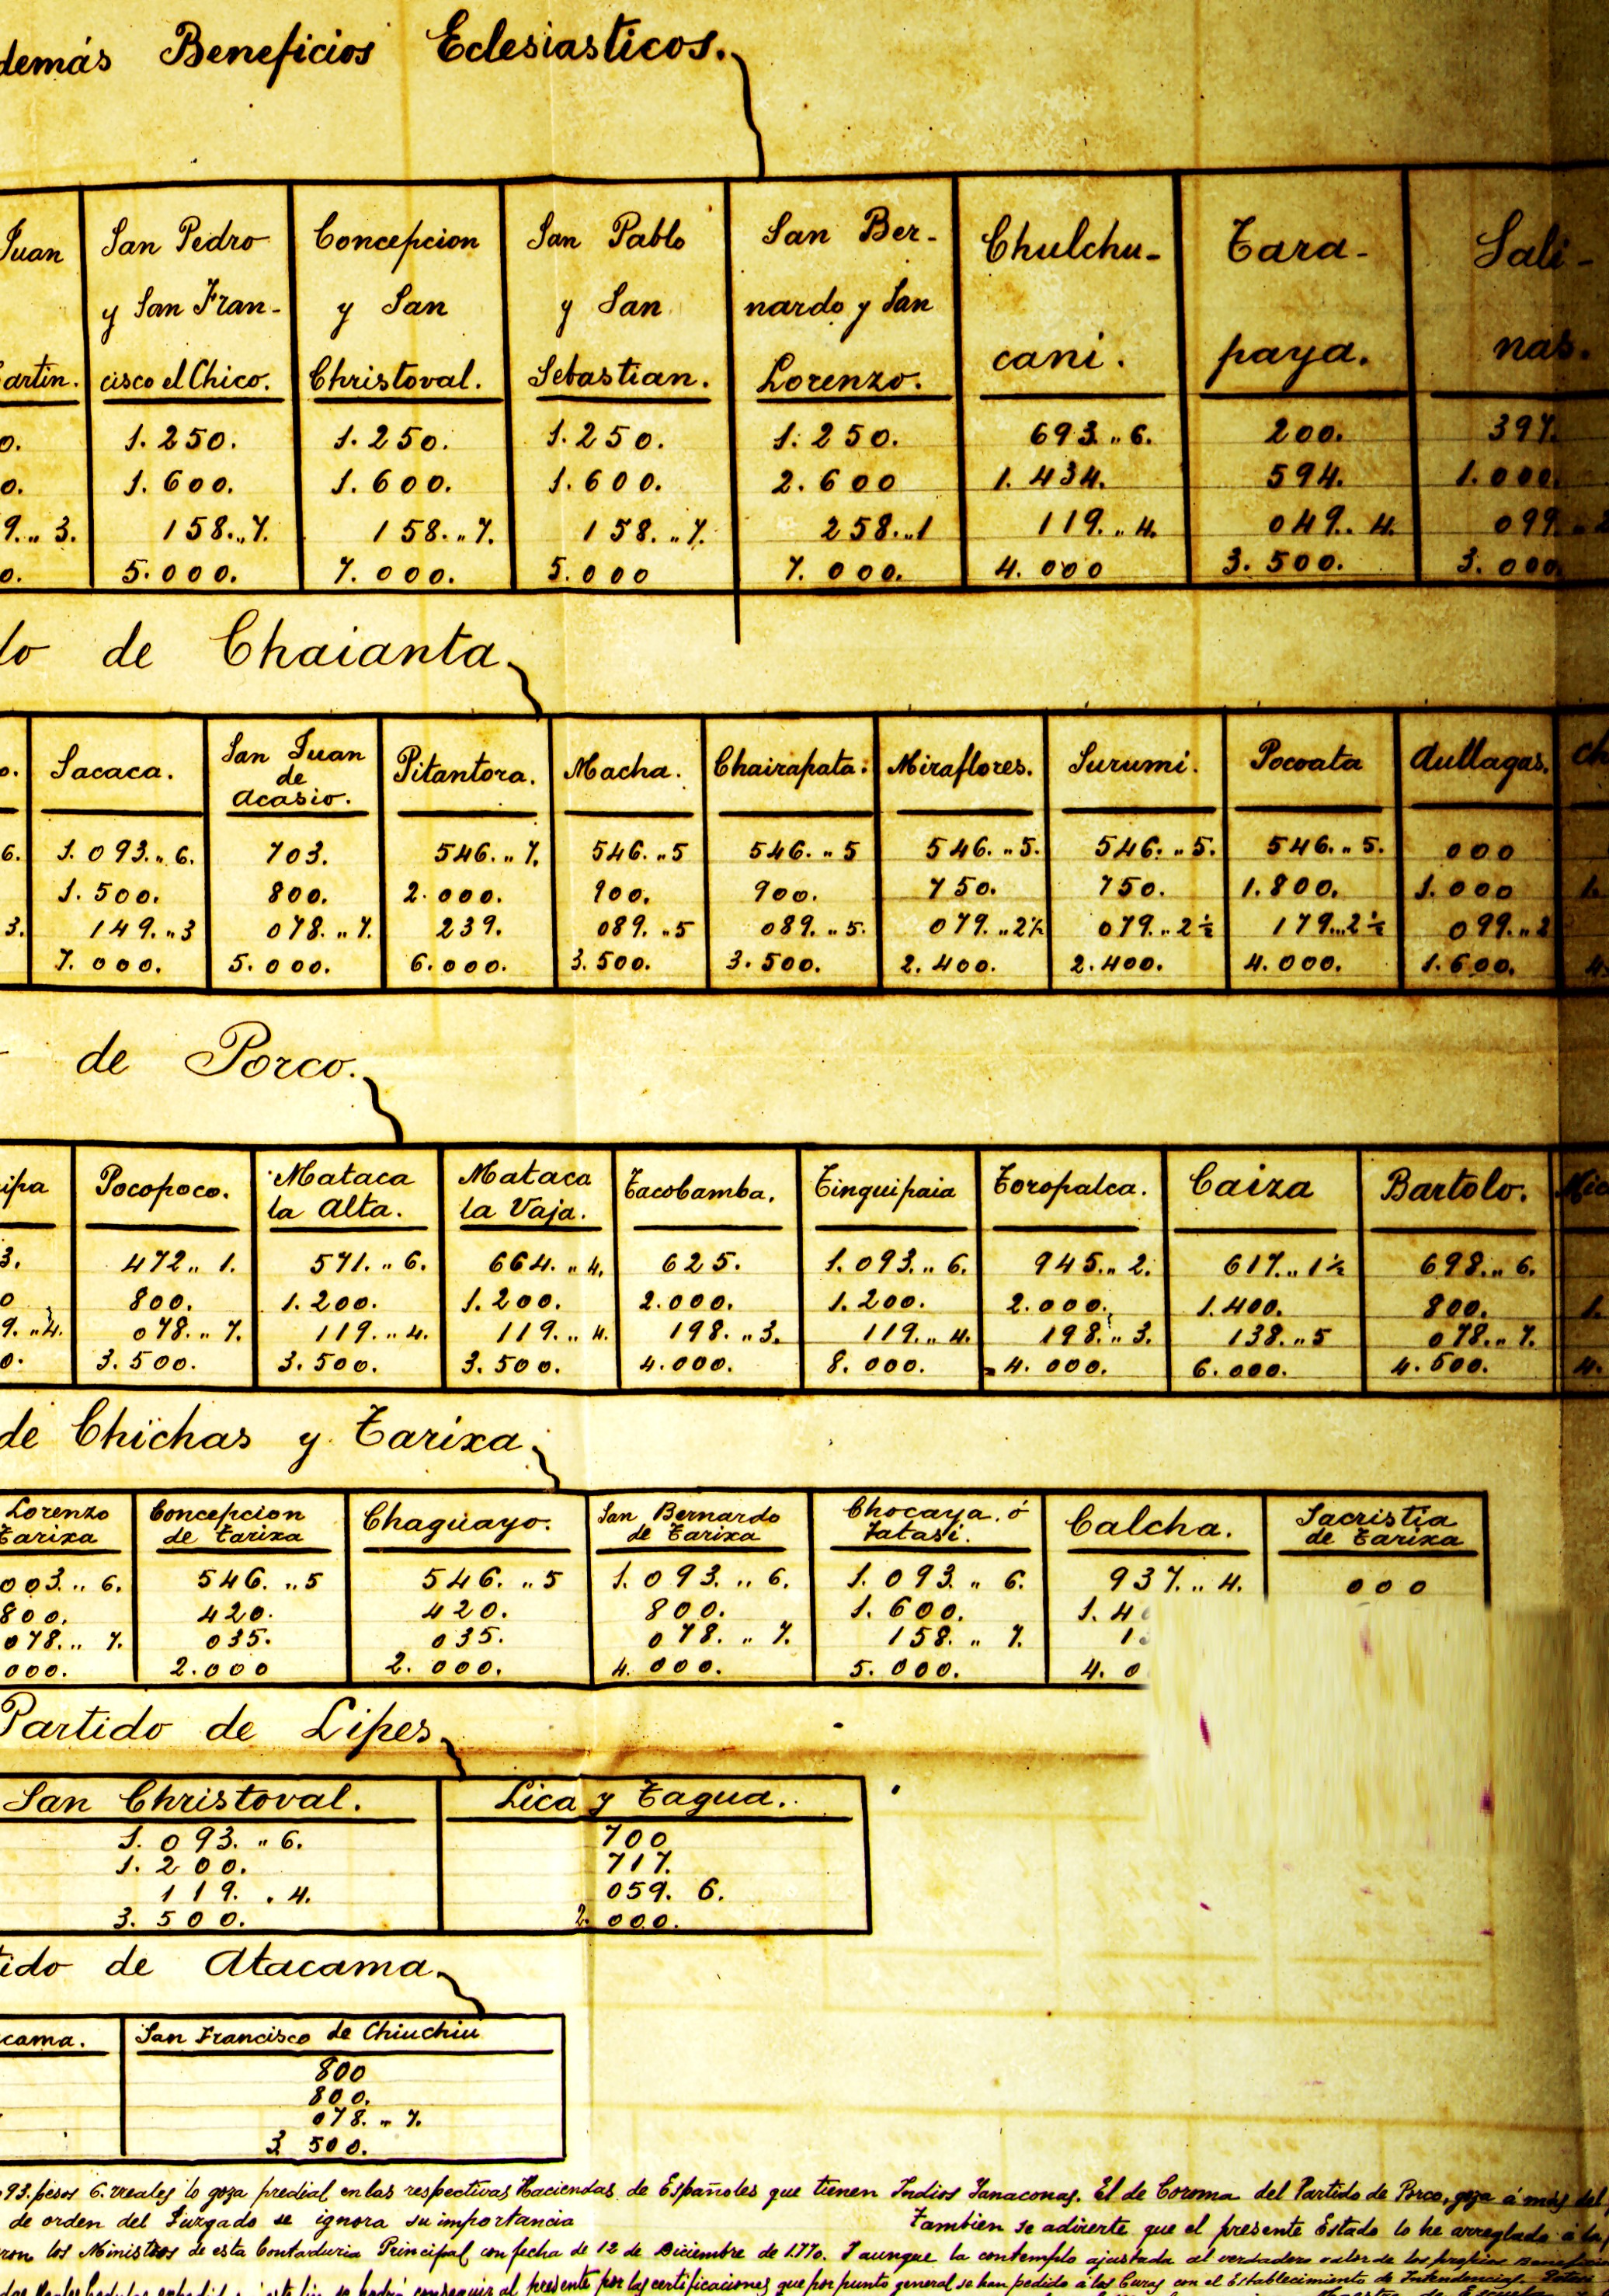 demás Beneficios Eclesiasticos.
Juan San Pedro Concepcion San Pablo San Ber- Chulchu- Tara- Sali-
y San Fran- y San y San nardo y San
artin. cisco el Chico. Christoval. Sebastian. Lorenzo. cani. paya. nas.
0. 1.250. 1.250. 1.250. 1.250. 693.,,6. 200. 397.
0. 1.600. 1.600. 1.600. 2.600 1.434. 594. 1.000.
9.,,3. 158.,,7. 158.,,7. 158.,,7. 258.,,1 119.,,4. 049.,,4. 099.
0. 5.000. 7.000. 5.000 7.000. 4.000 3.500. 3.000.
do de Chaianta.
o. Sacaca. San Juan de Acasio. Pitantora. Macha. Chairapata. Miraflores. Surumi. Pocoata Aullagas. Ch
6. 1.093.,,6. 703. 546.,,7. 546.,,5 546.,,5 546.,,5. 546.,,5. 546.,,5. 000
1.500. 800. 2.000. 900. 900. 750. 750. 1.800. 1.000 1.
3. 149.,,3 078.,,7. 239. 089.,,5 089.,,5. 079.,,2½ 079.,,2½ 179.,,2½ 099.,,2
7.000. 5.000. 6.000. 3.500. 3.500. 2.400. 2.400. 4.000. 1.600. 4.
de Porco.
ipa Pocopoco. Mataca la Alta. Mataca la Vaja. Tacobamba. Tinguipaia Toropalca. Caiza Bartolo.
3. 472.,,1. 571.,,6. 664.,,4. 625. 1.093.,,6. 945.,,2. 617.,,1½ 698.,,6.
0 800. 1.200. 1.200. 2.000. 1.200. 2.000. 1.400. 800. 1.
9.,,4. 078.,,7. 119.,,4. 119.,,4. 198.,,3. 119.,,4. 198.,,3. 138.,,5 078.,,7.
0. 3.500. 3.500. 3.500. 4.000. 8.000. 4.000. 6.000. 4.500. 4.
de Chichas y Tarixa.
Lorenzo Concepcion Chaguayo. San Bernardo Chocaya ó Calcha. Sacristia
Tarixa de Tarixa de Tarixa Tatasi. de Tarixa
003.,,6. 546.,,5 546.,,5 1.093.,,6. 1.093.,,6. 937.,,4. 000
800. 420. 420. 800. 1.600. 1.4
078.,,7. 035. 035. 078.,,7. 158.,,7. 1
000. 2.000 2.000. 4.000. 5.000. 4.0
Partido de Lipes.
San Christoval. Lica y Tagua.
1.093.,,6. 700
1.200. 717.
119.,,4. 059. 6.
3.500. 2.000.
tido de Atacama.
cama. San Francisco de Chiuchiu
800
800.
078.,,7.
3 500.
93. pesos 6. rreales lo goza predial en las respectivas Haciendas de Españoles que tienen Indios Yanaconas. El de Coroma del Partido de Porco, goza á más del
de orden del Juzgado se ignora su importancia Tambien se advierte que el presente Estado lo he arreglado á la
ron los Ministros de esta Contaduria Principal con fecha de 12 de Diciembre de 1.770. Y aunque la contemplo ajustada al verdadero valor de los propios
se podrá conseguir al presente por las certificaciones que por punto general se han pedido á los Curas con el Establecimiento de Intendencias.